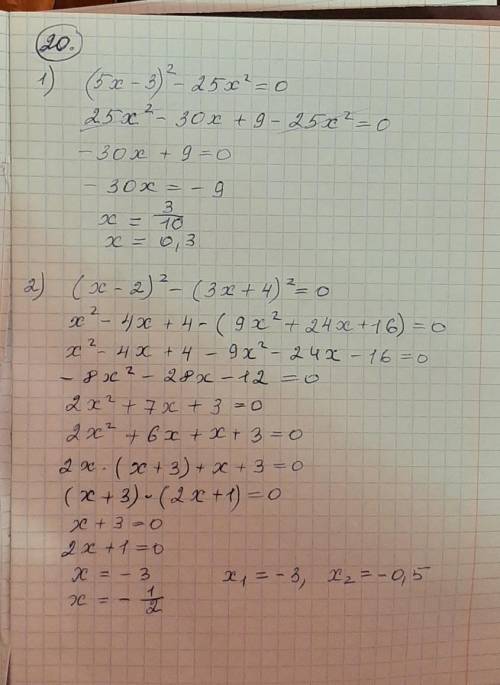 20.
1) (5x - 3)² - 25x² = 0
25x² - 30x + 9 - 25x² = 0
- 30x + 9 = 0
- 30x = - 9
x = 3/10
x = 0,3
2) (x - 2)² - (3x + 4)² = 0
x² - 4x + 4 - (9x² + 24x + 16) = 0
x² - 4x + 4 - 9x² - 24x - 16 = 0
- 8x² - 28x - 12 = 0
2x² + 7x + 3 = 0
2x² + 6x + x + 3 = 0
2x · (x + 3) + x + 3 = 0
(x + 3) · (2x + 1) = 0
x + 3 = 0
2x + 1 = 0
x = - 3 x₁ = - 3, x₂ = - 0,5
x = - 1/2